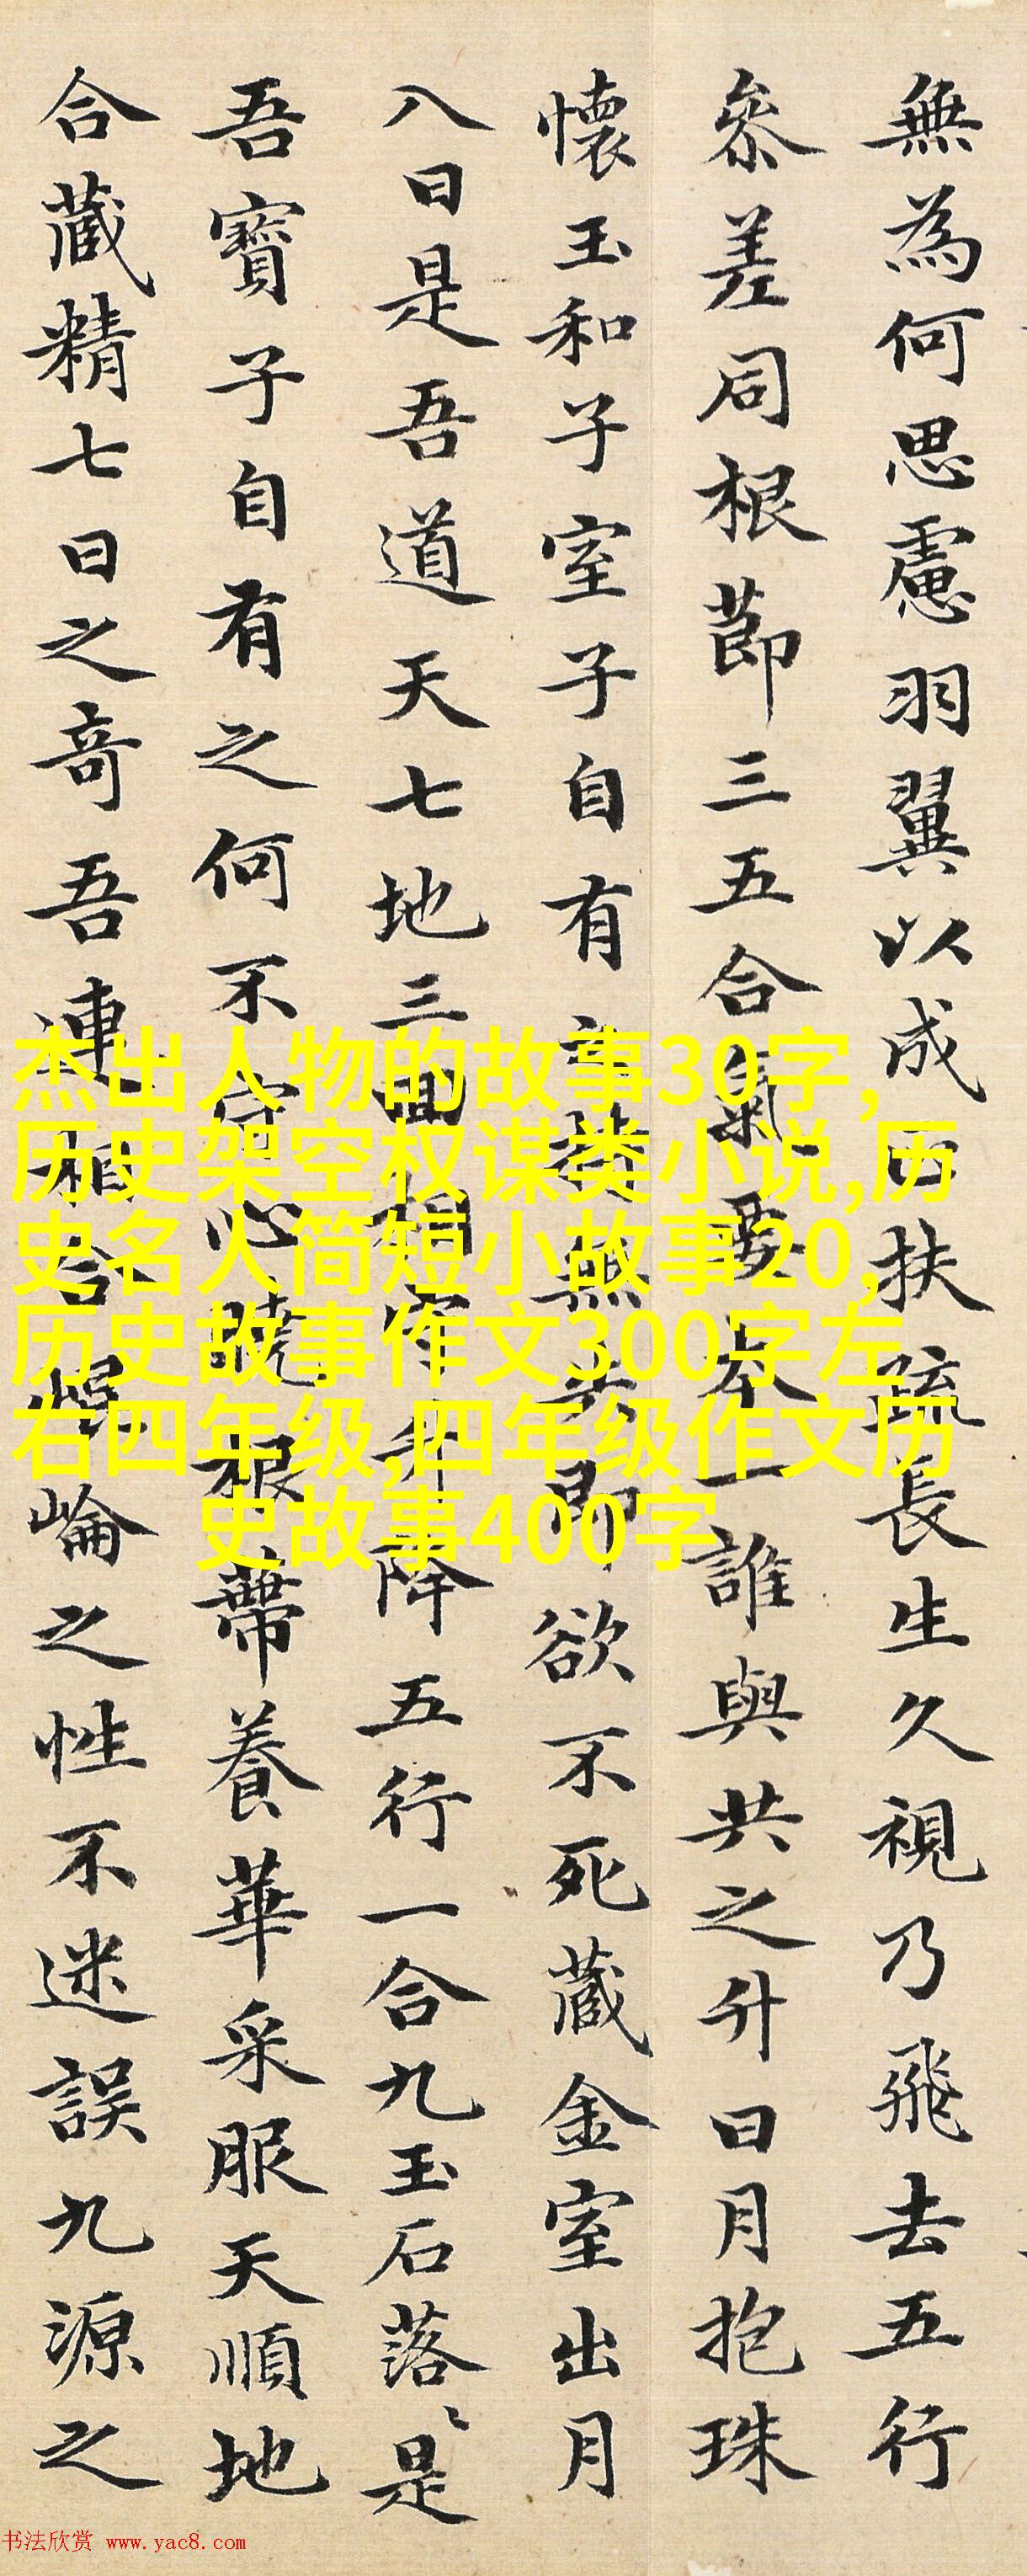 無為何思慮羽翼以成正扶疏長生久視乃飛去五行
叅差同根莭三五合氣要本一誰與共之升日月抱珠
懷玉和子室子自有之持無失即欲不死藏金室出月
八日是吾道天七地三回相守升降五行一合九玉石落〻是
吾寶子自有之何不守心曉根蔕養華采服天順地
合藏精七日之竒吾連相合崐崘之性不迷誤九源之
杰出人物的故事30字,
历史架空权谋类小说,历
史名人简短小故事20,
历史故事作文300字左
右四年级,四年级作文历
史故事400字
书法欣赏 www.yac8.com